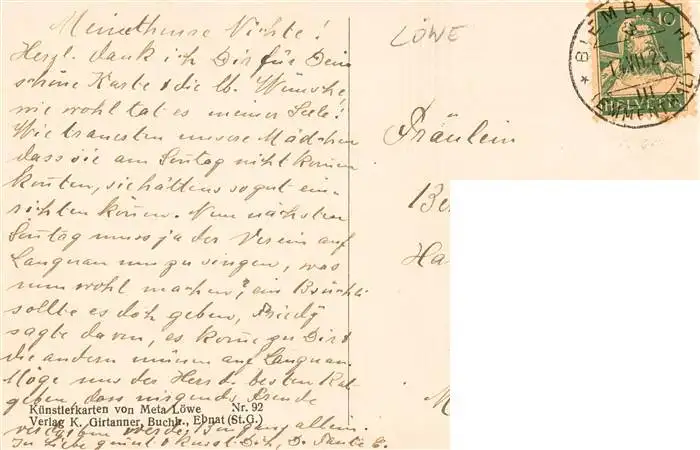 Meine theure Nichte!
Herzl. dank ich Dir für Dein
schöne Karte & die lb. Wünsche,
wie wohl tat es meiner Seele!
Wie trauerten unsere Mädchen
dass sie am Sontag niht komen
konten, sie hättens so gut ein-
richten könen. Nun nächsten
Sontag muss ja der Verein auf
Langnau um zu singen, was
nun wohl machen? ein Bsüchli
sollte es doh geben, Friedy
sagte davon, es kome zu Dir &
die andern müssen auf Langnau.
Möge uns der Herr d. besten Rat
geben, dass nirgends Freude
werde. Bin ganz allein.
In Liebe grüsst & küsst Dich, D. Tante E.
Künstlerkarten von Meta Löwe Nr. 92
Verlag K. Girtanner, Buchh., Ebnat (St. G.)
LÖWE
BIEMBACH
VIII.25
III
(EMMENTHAL)
10
HELVETIA
Fräulein
Be
Ha
M